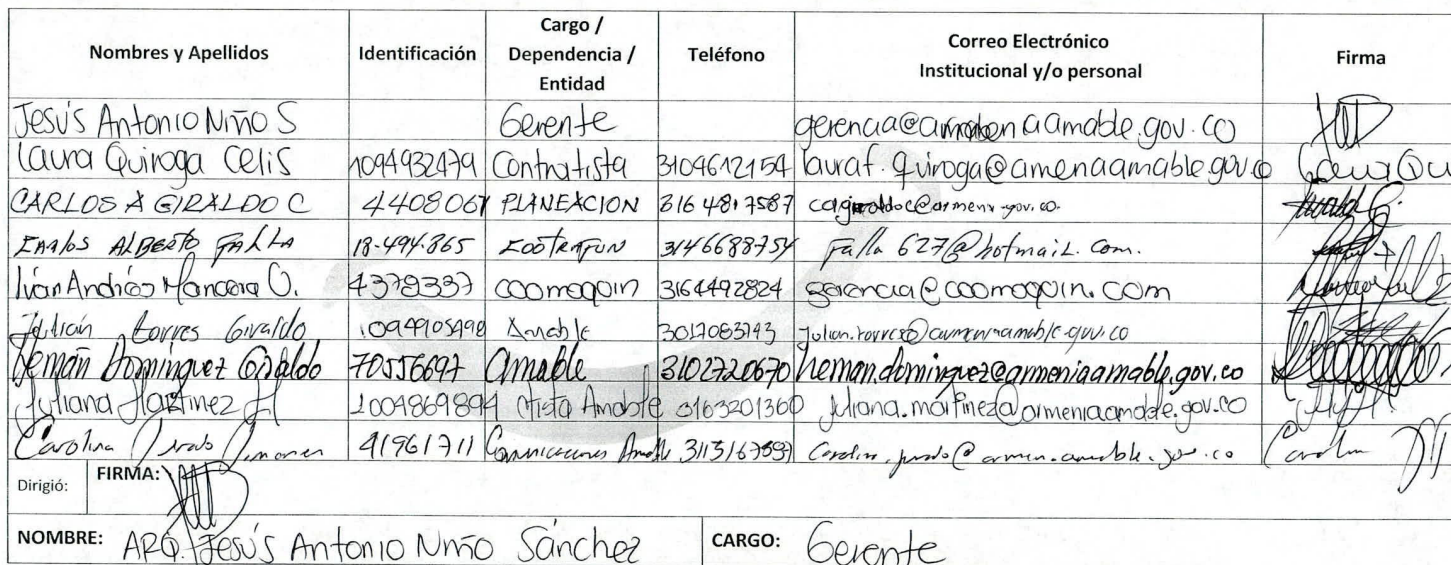 Nombres y Apellidos Identificación Cargo / Dependencia / Entidad Teléfono Correo Electrónico Institucional y/o personal Firma
Jesús Antonio Niño S Gerente
Laura Quiroga Celis 1094932479 Contratista 3104612154 lauraf.quiroga@armeniaamable.gov.co
CARLOS A GIRALDO C 4408067 PLANEACION 316 4817587
ALBERTO FALLA 18.494.865 3146688754 Falla 627@hotmail.com.
Iván Andrés Mancera O. 4379337 coomoquin 3164492824 gerencia@coomoquin.com
Julián Torres Giraldo 1094905498 Amable 3017083743
Hernán Domínguez Giraldo 70556697 amable 3102720670 hernan.dominguez@armeniaamable.gov.co
Juliana Martinez H 1004869894 Ctista Amable 3163201360 juliana.martinez@armeniaamable.gov.co
Carolina Jurado Jimenez 41961711 Comunicaciones Amable
Dirigió: FIRMA:
NOMBRE: ARQ. Jesús Antonio Niño Sánchez CARGO: Gerente